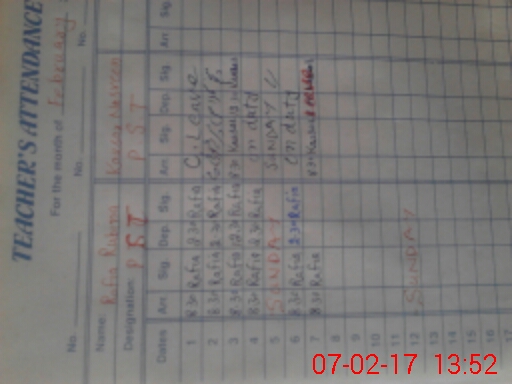 TEACHER'S ATTENDANCE
For the month of February
No. No. No.
Name: Rafia Kausar Nasreen
Designation: P S T P S T
Dates Arr Sig. Dep. Sig. Arr. Sig. Dep. Sig. Arr Sig.
1 8.30 Rafia 2.30 Rafia C. Leave
2 8.30 Rafia 2.30 Rafia
3 8.30 Rafia 12.30 Rafia 8.30 Kausar
4 8.30 Rafia 2.30 Rafia on duty
5 SUNDAY SUNDAY
6 8.30 Rafia 2.30 Rafia on duty
7 8.30 Rafia 8.30 Kausar
8
9
10
11
12 SUNDAY
13
14
15
16
17
07-02-17 13:52